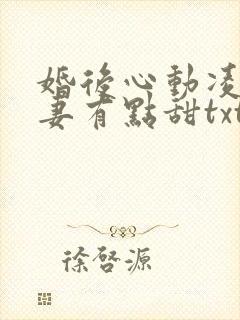 婚後心動凌
妻有點甜txt
徐啓源